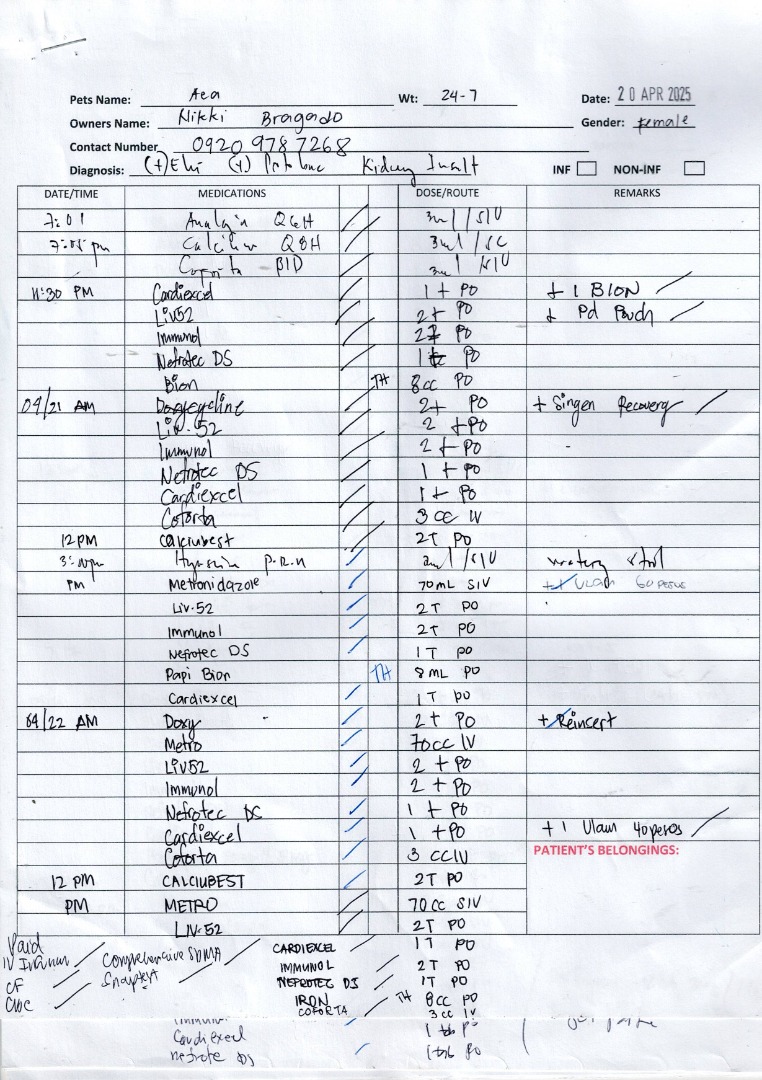 Pets Name: Aea Wt: 24-7 Date: 20 APR 2025
Owners Name: Nikki Bragado Gender: Female
Contact Number 0920 978 7268
Diagnosis: (+) Ehr (+) Kidney INF NON-INF
DATE/TIME MEDICATIONS DOSE/ROUTE REMARKS
7:01 Q6H 3ml / SIV
pm Q8H 3ml / SC
BID 3ml / SIV
11:30 PM Cardiexcel 1 t PO + 1 BION
Liv52 2t PO + Pd Pouch
Immunol 2t PO
Nefrotec DS 1 t PO
Bion TH 8cc PO
04/21 AM Doxycycline 2t PO + Singen Recovery
Liv.52 2 t PO
Immunol 2 t PO
Nefrotec DS 1 t PO
Cardiexcel 1 t PO
Coforta 3 cc IV
12PM Calciubest 2T PO
P.R.N /SIV watery stool
PM Metronidazole 70mL SIV
Liv-52 2T PO
Immunol 2T PO
Nefrotec DS 1T PO
Papi Bion TH 8 mL PO
Cardiexcel 1T PO
04/22 AM Doxy 2 t PO + Reinsert
Metro 70cc IV
Liv52 2 t PO
Immunol 2 t PO
Nefrotec DS 1 t PO
Cardiexcel 1 t PO + 1 Ulam 40pesos
Coforta 3 CC IV PATIENT'S BELONGINGS:
12 PM CALCIUBEST 2T PO
PM METRO 70cc SIV
LIV-52 2T PO
Paid Comprehensive SDMA CARDIEXCEL 1T PO
IMMUNOL 2T PO
CF NEFROTEC DS 1T PO
CBC IRON TH 8cc PO
COFORTA 3 cc IV
Cardiexcel
Nefrotec DS 1 tab PO